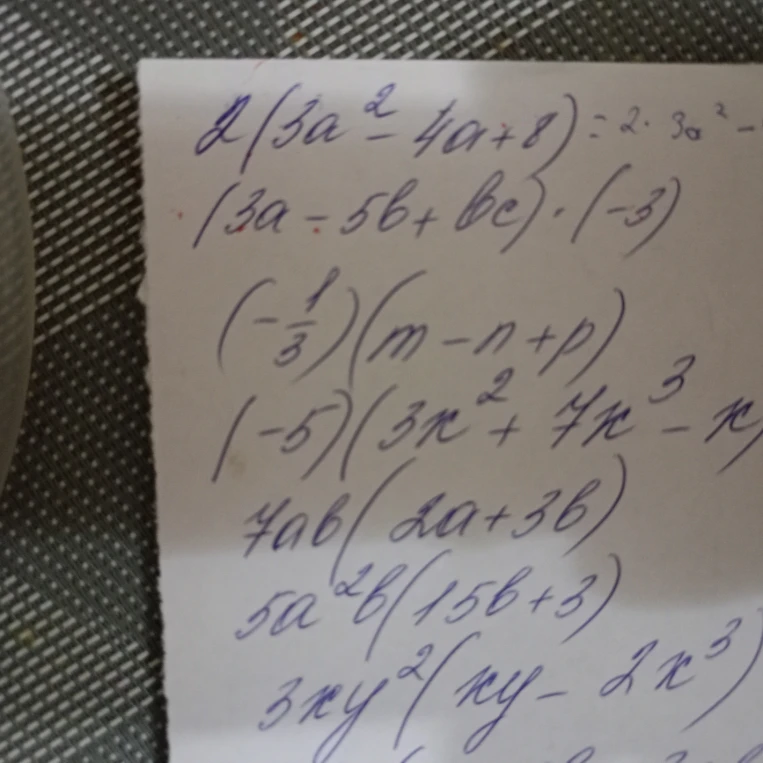 2(3a² - 4a + 8) = 2 · 3a² -
(3a - 5b + bc) · (-3)
(-1/3)(m - n + p)
(-5)(3x² + 7x³ - x)
7ab(2a + 3b)
5a²b(15b + 3)
3xy²(xy - 2x³)